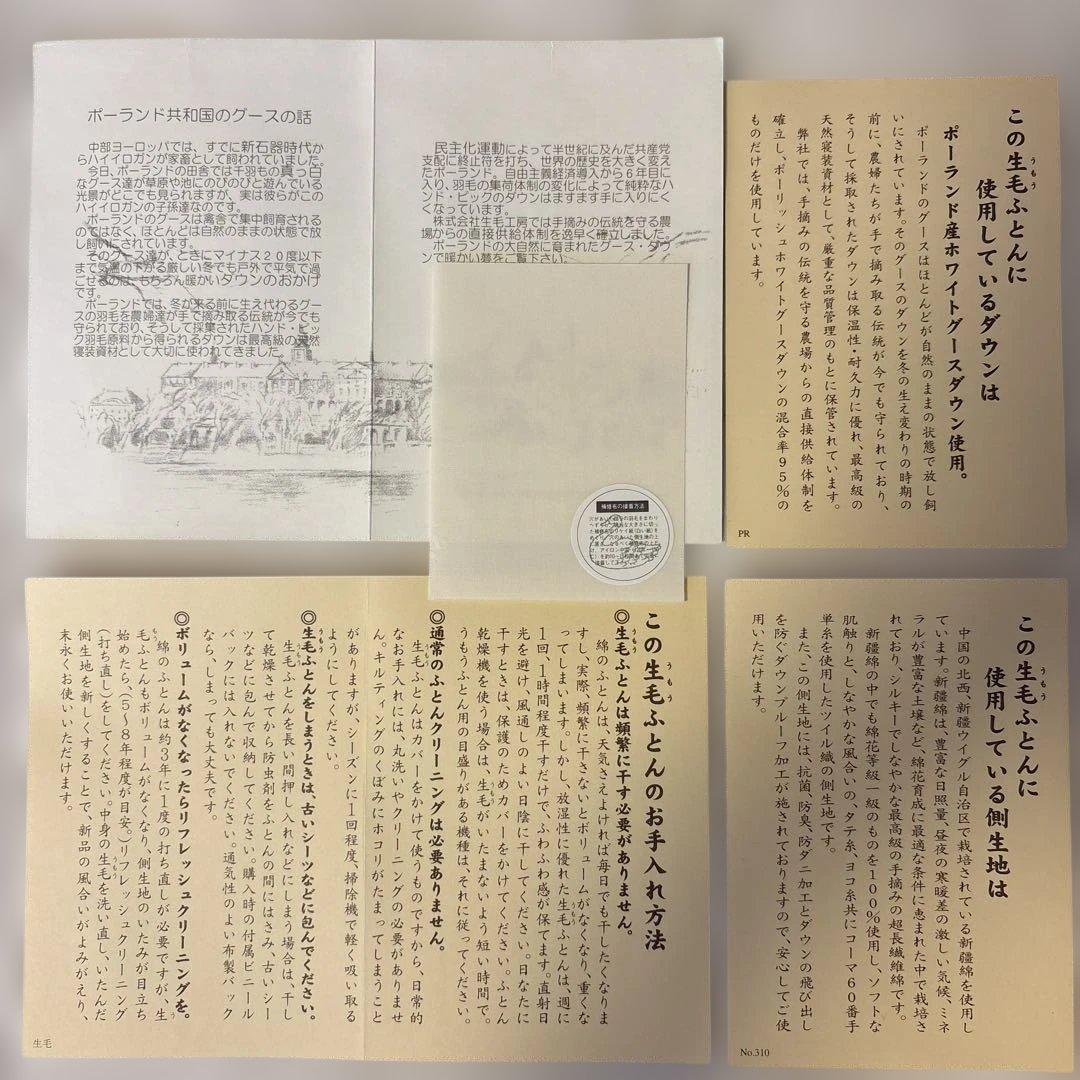 ポーランド共和国のグースの話
中部ヨーロッパでは、すでに新石器時代か
らハイイロガンが家畜として飼われていました。
今日、ポーランドの田舎では千羽もの真っ白
なグース達が草原や池にのびのびと遊んでいる
光景がどこでも見られますが、実は彼らがこの
ハイイロガンの子孫達なのです。
ポーランドのグースは禽舎で集中飼育される
のではなく、ほとんどは自然のままの状態で放
し飼いにされています。
そのグース達が、ときにマイナス20度以下
まで気温の下がる厳しい冬でも戸外で平気で過
ごせるのはもちろん暖かいダウンのおかげ
です。
ポーランドでは、冬が来る前に生え代わるグー
スの羽毛を農婦達が手で摘み取る伝統が今でも
守られており、そうして採集されたハンド・ピッ
ク羽毛原料から得られるダウンは最高級の天然
寝装資材として大切に使われてきました。
民主化運動によって半世紀に及んだ共産党
支配に終止符を打ち、世界の歴史を大きく変え
たポーランド。自由主義経済導入から6年目に
入り、羽毛の集荷体制の変化によって純粋なハ
ンド・ピックのダウンはますます手に入りにく
くなっています。
株式会社生毛工房では手摘みの伝統を守る農
場からの直接供給体制を逸早く確立しました。
ポーランドの大自然に育まれたグース・ダウ
ンで暖かい夢をご覧下さい。
補修布の接着方法
この生毛ふとんに
うもう
使用しているダウンは
ポーランド産ホワイトグースダウン使用。
ポーランドのグースはほとんどが自然のままの状態で放し飼
いにされています。そのグースのダウンを冬の生え変わりの時期の
前に、農婦たちが手で摘み取る伝統が今でも守られており、
そうして採取されたダウンは保温性・耐久力に優れ、最高級の
天然寝装資材として、厳重な品質管理のもとに保管されています。
弊社では、手摘みの伝統を守る農場からの直接供給体制を
確立し、ポーリッシュホワイトグースダウンの混合率95%の
ものだけを使用しています。
PR
この生毛ふとんのお手入れ方法
うもう
◎生毛ふとんは頻繁に干す必要がありません。
うもう
綿のふとんは、天気さえよければ毎日でも干したくなりま
すし、実際、頻繁に干さないとボリュームがなくなり、重くな
ってしまいます。しかし、放湿性に優れた生毛ふとんは、週に
うもう
1回、1時間程度干すだけで、ふわふわ感が保てます。直射日
光を避け、風通しのよい日陰に干してください。日なたに
干すときは、保護のためカバーをかけてください。ふとん
乾燥機を使う場合は、生毛がいたまないよう短い時間で。
うもう
うもうふとん用の目盛りがある機種は、それに従ってください。
◎通常のふとんクリーニングは必要ありません。
生毛ふとんはカバーをかけて使うものですから、日常的
うもう
なお手入れには、丸洗いやクリーニングの必要がありませ
ん。キルティングのくぼみにホコリがたまってしまうこと
がありますが、シーズンに1回程度、掃除機で軽く吸い取る
ようにしてください。
◎生毛ふとんをしまうときは、古いシーツなどに包んでください。
うもう
生毛ふとんを長い間押し入れなどにしまう場合は、干し
うもう
て乾燥させてから防虫剤をふとんの間にはさみ、古いシー
ツなどに包んで収納してください。購入時の付属ビニール
バックには入れないでください。通気性のよい布製バック
なら、しまっても大丈夫です。
◎ボリュームがなくなったらリフレッシュクリーニングを。
綿のふとんは約3年に1度の打ち直しが必要ですが、生
もう
毛ふとんもボリュームがなくなり、側生地のいたみが目立ち
始めたら、(5〜8年程度が目安。)リフレッシュクリーニング
(打ち直し)をしてください。中身の生毛を洗い直し、いたんだ
うもう
側生地を新しくすることで、新品の風合いがよみがえり、
末永くお使いいただけます。
生毛
この生毛ふとんに
うもう
使用している側生地は
中国の北西、新疆ウイグル自治区で栽培されている新疆綿を使用し
ています。新疆綿は、豊富な日照量、昼夜の寒暖差の激しい気候、ミネ
ラルが豊富な土壌など、綿花育成に最適な条件に恵まれた中で栽培さ
れており、シルキーでしなやかな最高級の手摘みの超長繊維綿です。
新疆綿の中でも綿花等級一級のものを100%使用し、ソフトな
肌触りと、しなやかな風合いの、タテ糸、ヨコ糸共にコーマ60番手
単糸を使用したツイル織の側生地です。
また、この側生地には、抗菌、防臭、防ダニ加工とダウンの飛び出し
を防ぐダウンプルーフ加工が施されておりますので、安心してご使
用いただけます。
No.310